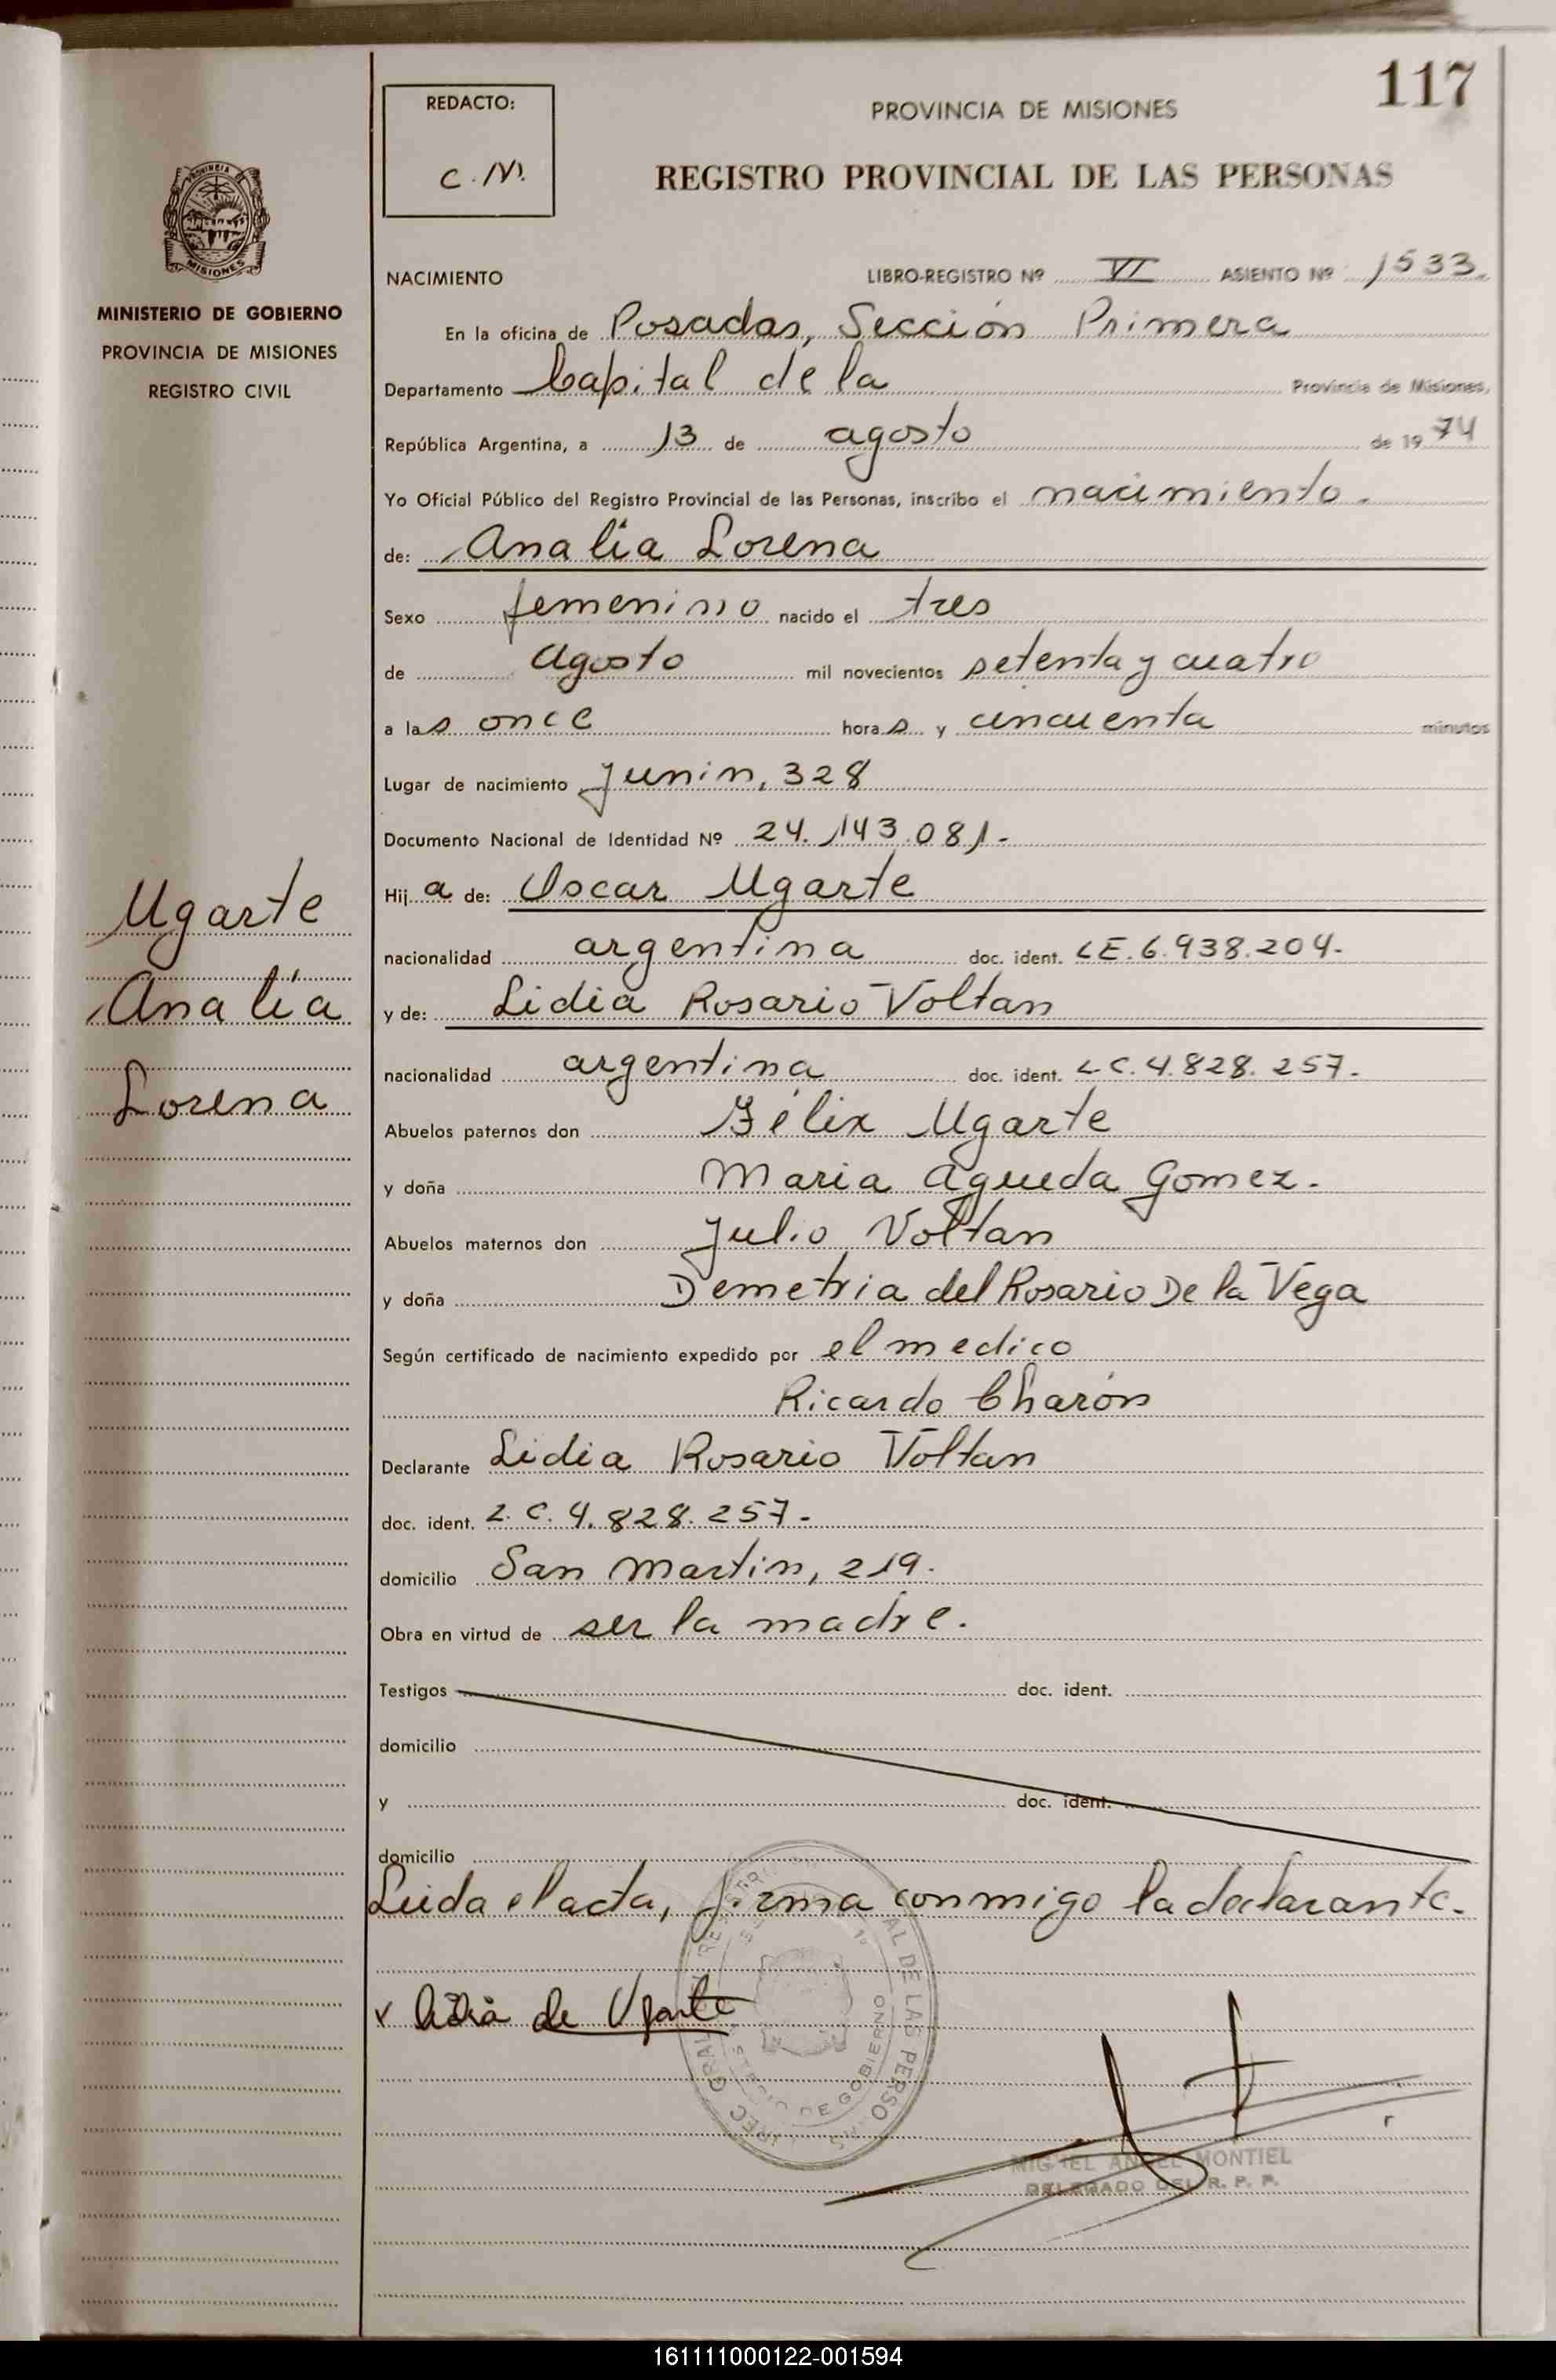 117
REDACTO:
C. M.
PROVINCIA DE MISIONES
REGISTRO PROVINCIAL DE LAS PERSONAS
MISIONES
MINISTERIO DE GOBIERNO
PROVINCIA DE MISIONES
REGISTRO CIVIL
NACIMIENTO LIBRO-REGISTRO Nº VI ASIENTO Nº 1533.
En la oficina de Posadas, Sección Primera
Departamento Capital de la Provincia de Misiones,
República Argentina, a 13 de agosto de 1974
Yo Oficial Público del Registro Provincial de las Personas, inscribo el nacimiento.
de: Analía Lorena
Sexo femenino nacido el tres
de Agosto mil novecientos setenta y cuatro
a las once horas y cincuenta minutos
Lugar de nacimiento Junin, 328
Documento Nacional de Identidad Nº 24.143.081.-
Hija de: Oscar Ugarte
nacionalidad argentina doc. ident. LE. 6.938.204.-
y de: Lidia Rosario Voltan
nacionalidad argentina doc. ident. L.C. 4.828.257.-
Abuelos paternos don Félix Ugarte
y doña Maria Agueda Gomez.-
Abuelos maternos don Julio Voltan
y doña Demetria del Rosario De la Vega
Según certificado de nacimiento expedido por el medico
Ricardo Charón
Declarante Lidia Rosario Voltan
doc. ident. L.C. 4.828.257.-
domicilio San Martin, 219.-
Obra en virtud de ser la madre.
Testigos doc. ident.
domicilio
y doc. ident.
domicilio
Leida el acta, firma conmigo la declarante.-
Lidia de Ugarte
Ugarte
Analía
Lorena
AL DE LAS PERSO
DE GOBIERNO
MIGUEL ANGEL MONTIEL
DELEGADO DEL R. P. P.
161111000122-001594